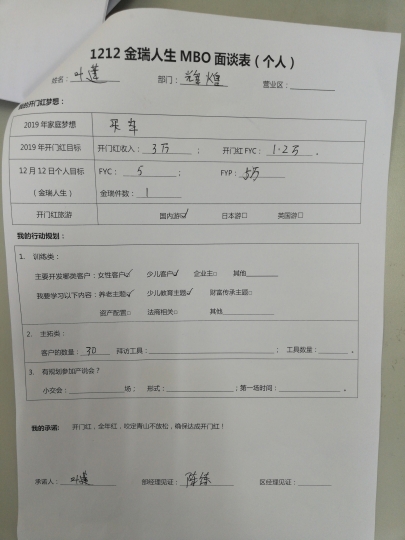 1212金瑞人生MBO面谈表（个人）
姓名：叶莲 部门：辉煌 营业区：
开门红梦想：
2019年家庭梦想 买车
2019年开门红目标 开门红收入：3万； 开门红FYC：1.2万。
12月12日个人目标 FYC：5； FYP：5万
（金瑞人生） 金瑞件数：1
开门红旅游 国内游☑ 日本游□ 英国游□
我的行动规划：
1. 训练类：
主要开发哪类客户：女性客户☑ 少儿客户☑ 企业主□ 其他
我要学习以下内容：养老主题☑ 少儿教育主题☑ 财富传承主题□
资产配置□ 法商相关□ 其他
2. 主拓类：
客户的数量：30 拜访工具：； 工具数量：。
3. 有规划参加产说会？
小交会：场； 形式：；第一场时间：。
我的承诺: 开门红，全年红，咬定青山不放松，确保达成开门红！
承诺人：叶莲 部经理见证：陈 区经理见证：